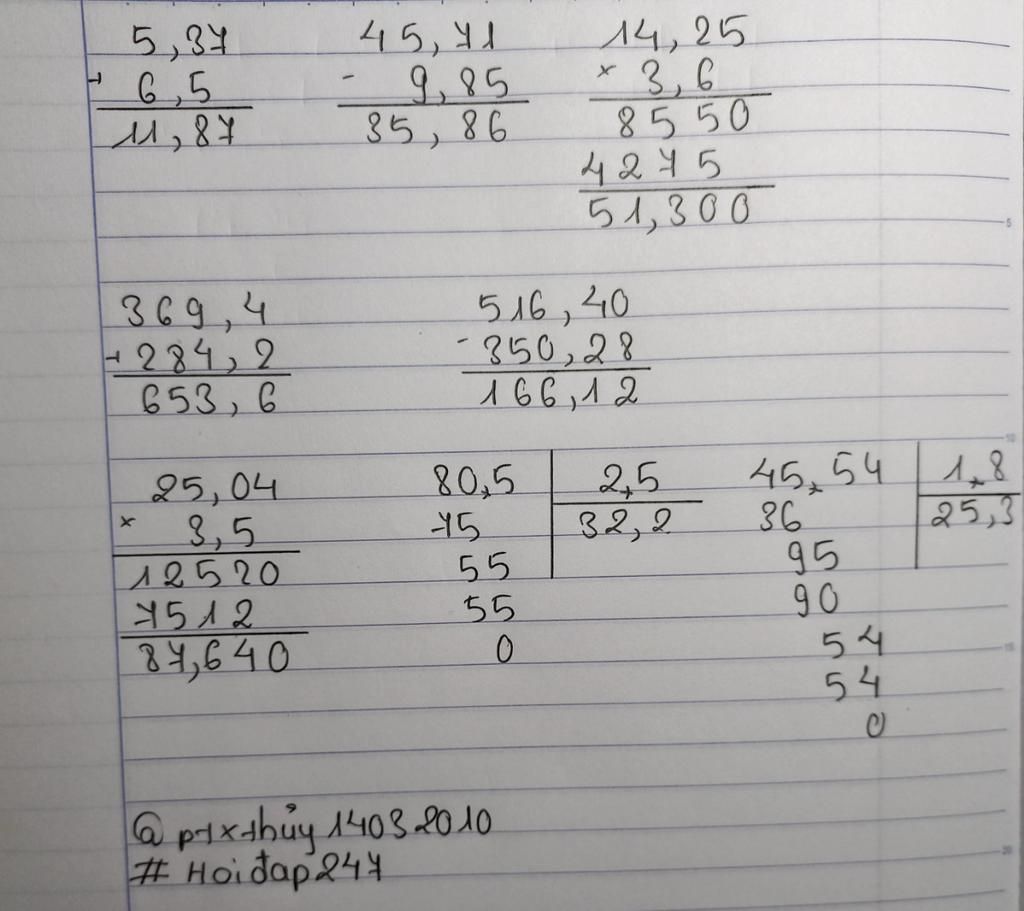 5,37 45,71 14,25
+ 6,5 - 9,85 × 3,6
11,87 35,86 8550
4275
51,300
369,4 516,40
+ 284,2 - 350,28
653,6 166,12
25,04 80,5 2,5 45,54 1,8
× 3,5 75 32,2 36 25,3
12520 55 95
7512 55 90
87,640 0 54
54
0
@ ptxthủy14032010
# Hoiđap247